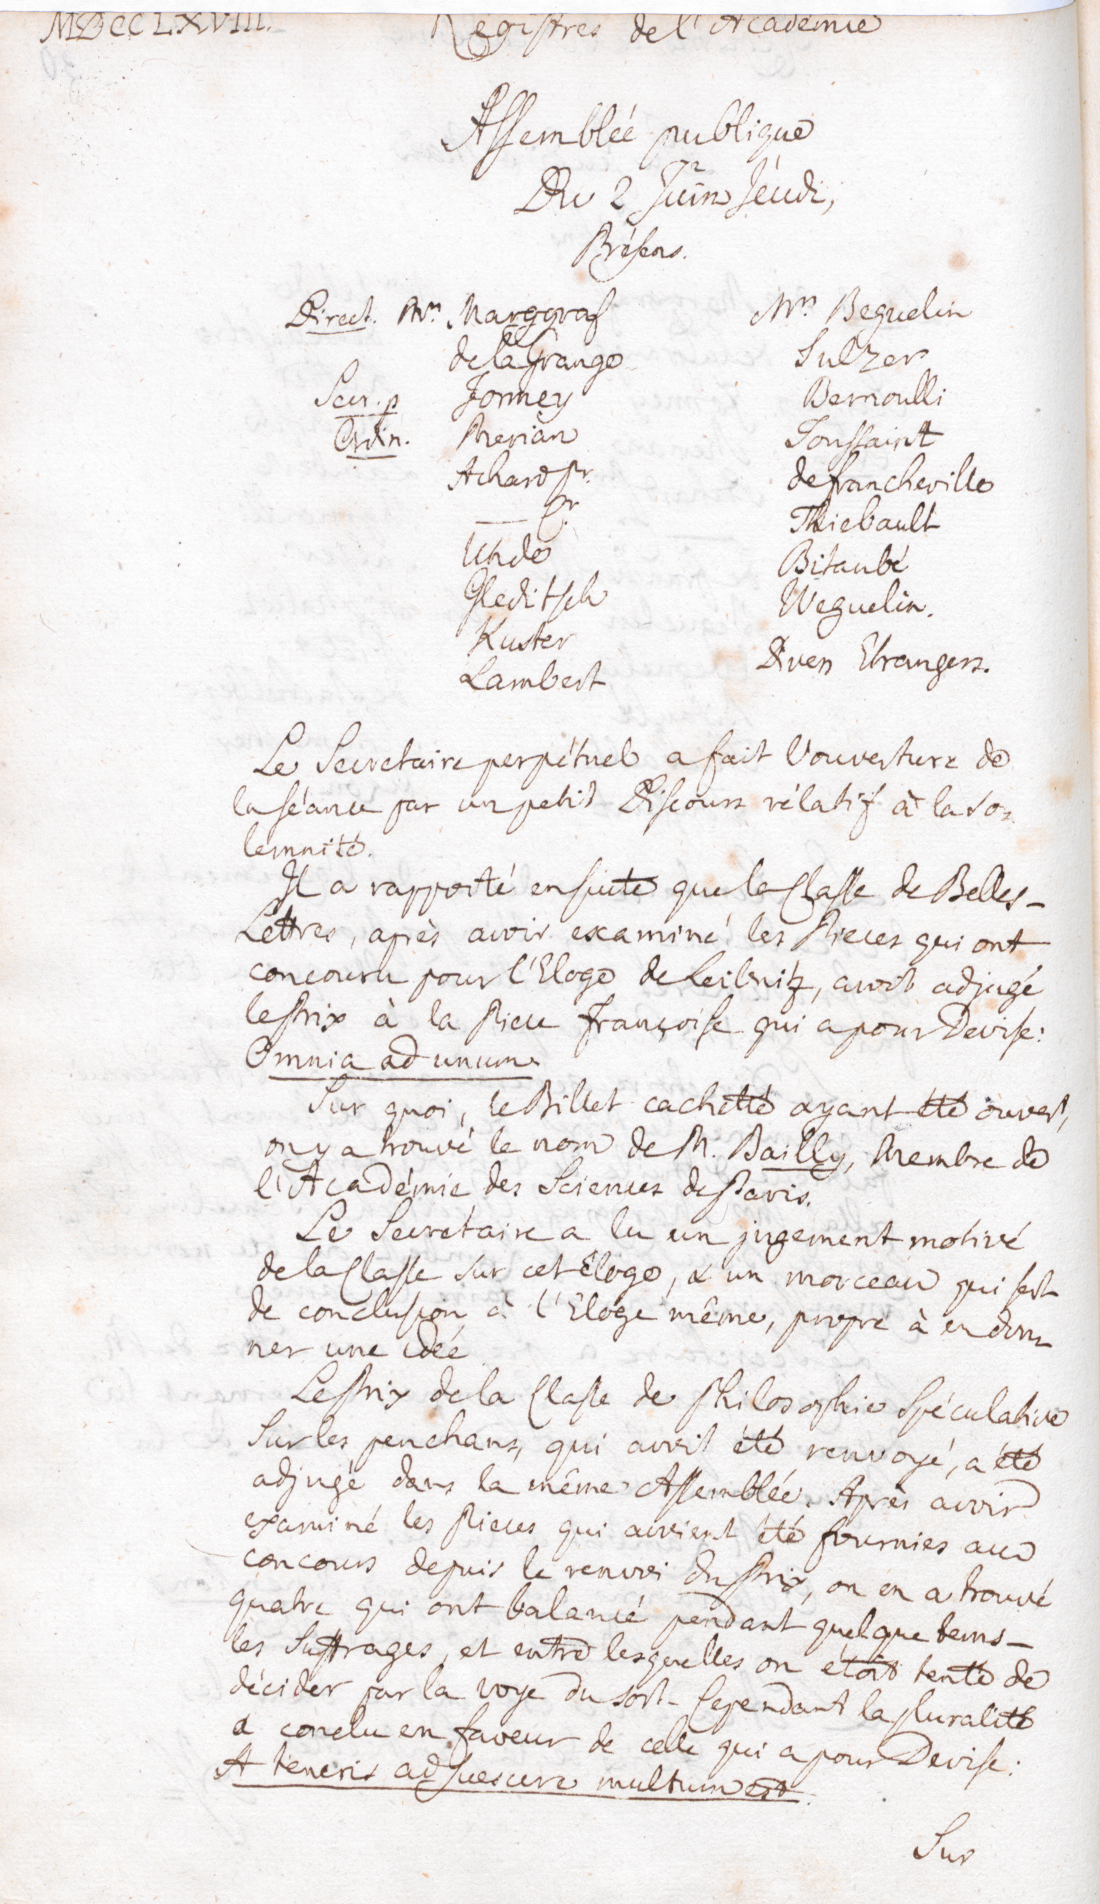 MDCCLXVIII.
Registres de l'Academie
Assemblée publique
Du 2 Juin Jeudi,
Présens.
Direct. Mrs Marggraf
de la Grange
Secr. p Formey
Ordin. Merian
Achard Pr.
— Gr.
Uhde
Gleditsch
Kuster
Lambert
Mrs Beguelin
Sulzer
Bernoulli
Toussaint
de Francheville
Thiebault
Bitaubé
Weguelin.
Divers Etrangers.
Le Secretaire perpétuel a fait l'ouverture de
la séance par un petit Discours rélatif à la so-
lemnité.
Il a rapporté ensuite que la Classe de Belles-
Lettres, après avoir examiné les Pieces qui ont
concouru pour l'Eloge de Leibnitz, avoit adjugé
le Prix à la Piece Françoise qui a pour Devise:
Omnia ad unum.
Sur quoi, le Billet cachetté ayant été ouvert,
on y a trouvé le nom de M. Bailly, Membre de
l'Académie des Sciences de Paris.
Le Secrétaire a lu un jugement motivé
de la Classe sur cet Eloge, & un morceau qui sert
de conclusion à l'Eloge même, propre à en don-
ner une idée
Le Prix de la Classe de Philosophie Spéculative
sur les penchans, qui avoit été renvoyé, a été
adjugé dans la même Assemblée. Après avoir
examiné les Pieces qui avoient été fournies au
concours depuis le renvoi du Prix, on en a trouvé
quatre qui ont balancé pendant quelque tems
les suffrages, et entre lesquelles on étoit tenté de
décider par la voye du sort. Cependant la pluralité
a conclu en faveur de celle qui a pour Devise:
A teneris adsuescere multum est.
Sur